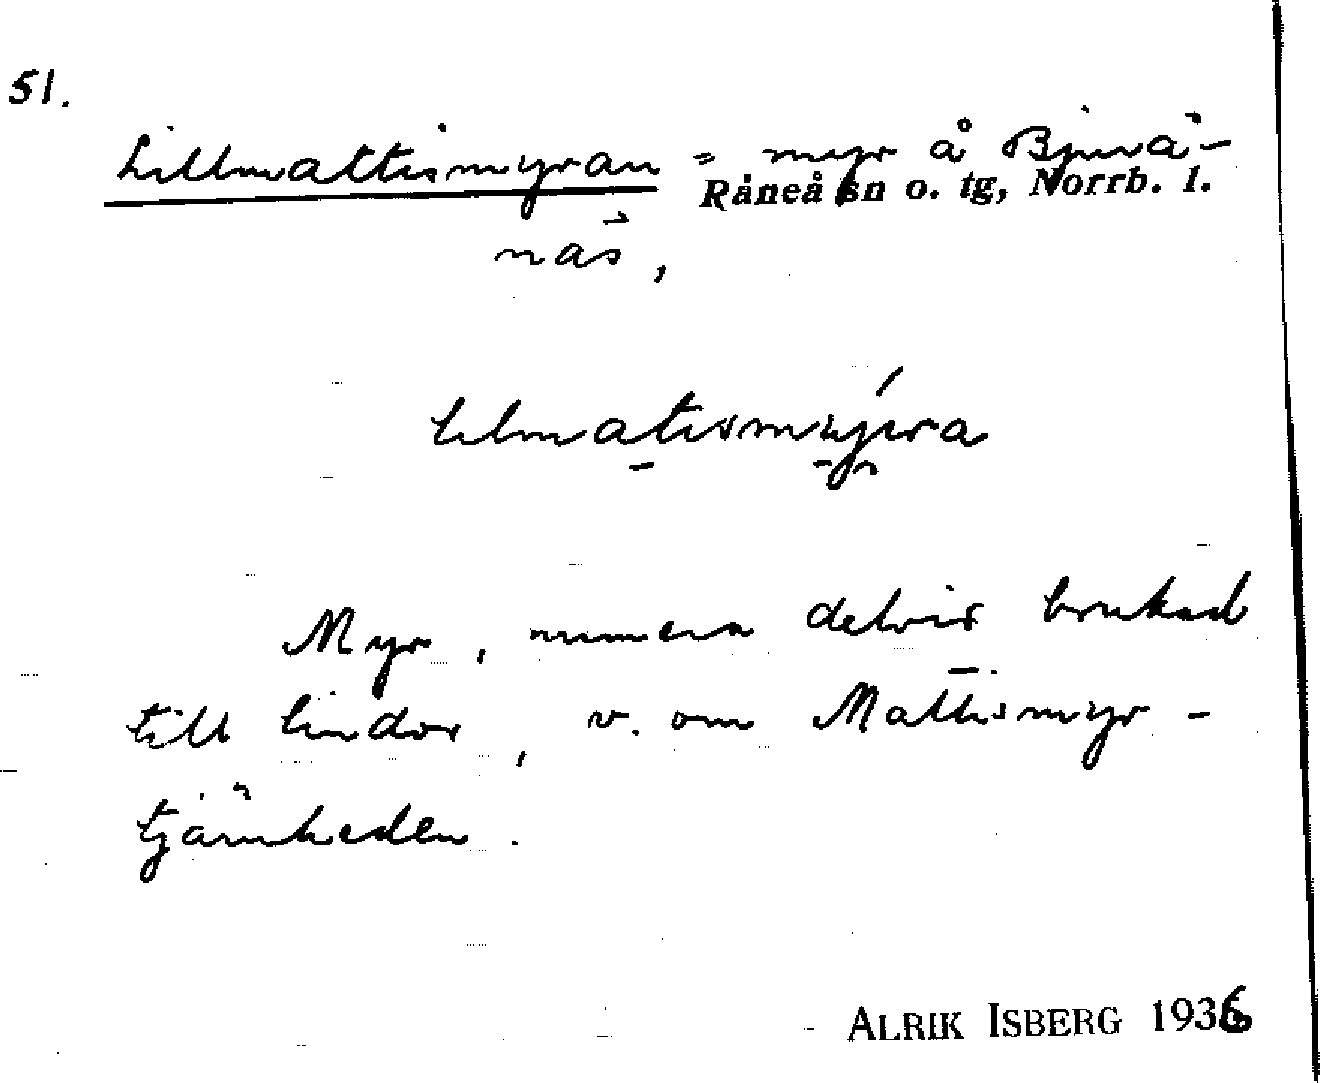 51.
Lillmattismyran = myr å Bjurå-
Råneå sn o. tg, Norrb. l.
näs,
lilmatismýra
Myr, numera delvis brukad
till lindor, v. om Mattismyr-
tjärnheden.
ALRIK ISBERG 1936